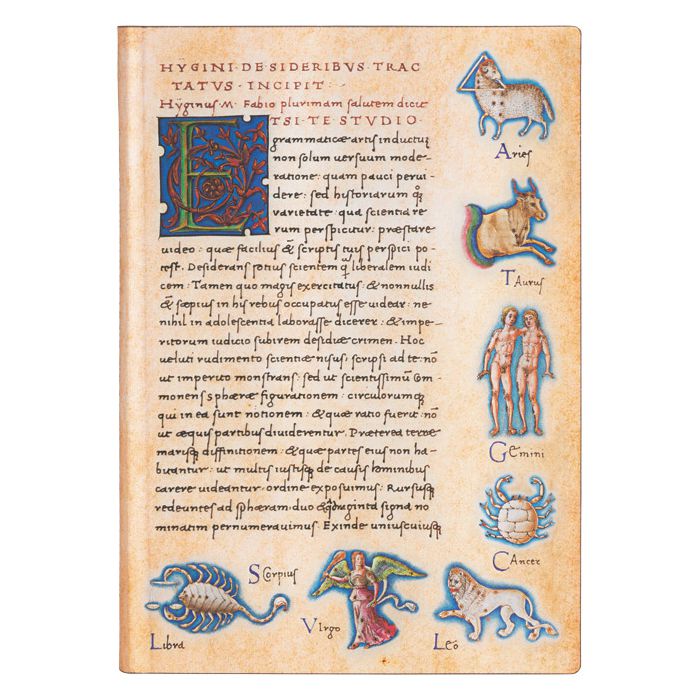 HYGINI · DE · SIDERIBVS · TRAC
TATVS · INCIPIT ·
Hÿginus · M · Fabio plurimam salutem dicit
ETSI · TE · STVDIO ·
grammaticæ artis inductū
non solum versuum mode-
ratione : quam pauci pervi-
dere : sed historiarum q̃;
varietate · qua scientia re
rum perspicitur : præstare
video : quæ facilius & scriptis tuis perspici po-
test. Desiderans potius scientem q̃ liberalem iudi
cem : Tamen quo magis exercitatus : & nonnullis
& sæpius in his rebus occupatus esse videar : ne
nihil in adolescentia laborasse dicerer : & impe-
ritorum iudicio subirem desidiæ crimen. Hoc
veluti rudimento scientiæ nisus : scripsi ad te : nō
ut imperito monstrans : sed ut scientissimū com-
monens sphæræ figurationem : circulorumq;
qui in ea sunt notionem : & quæ ratio fuerit : nō
ut æquis partibus dividerentur. Præterea terræ
marisq; diffinitionem : & quæ partes eius non ha-
bitantur : ut multis iustisq; de causis hominibus
carere videantur · ordine exposuimus. Rursusq;
redeuntes ad sphæram · duo & q̃draginta signa no
minatim pernumeravimus. Exinde uniuscuiusq;
Aries
Taurus
Gemini
Cancer
Scorpius
Libra
Virgo
Leo